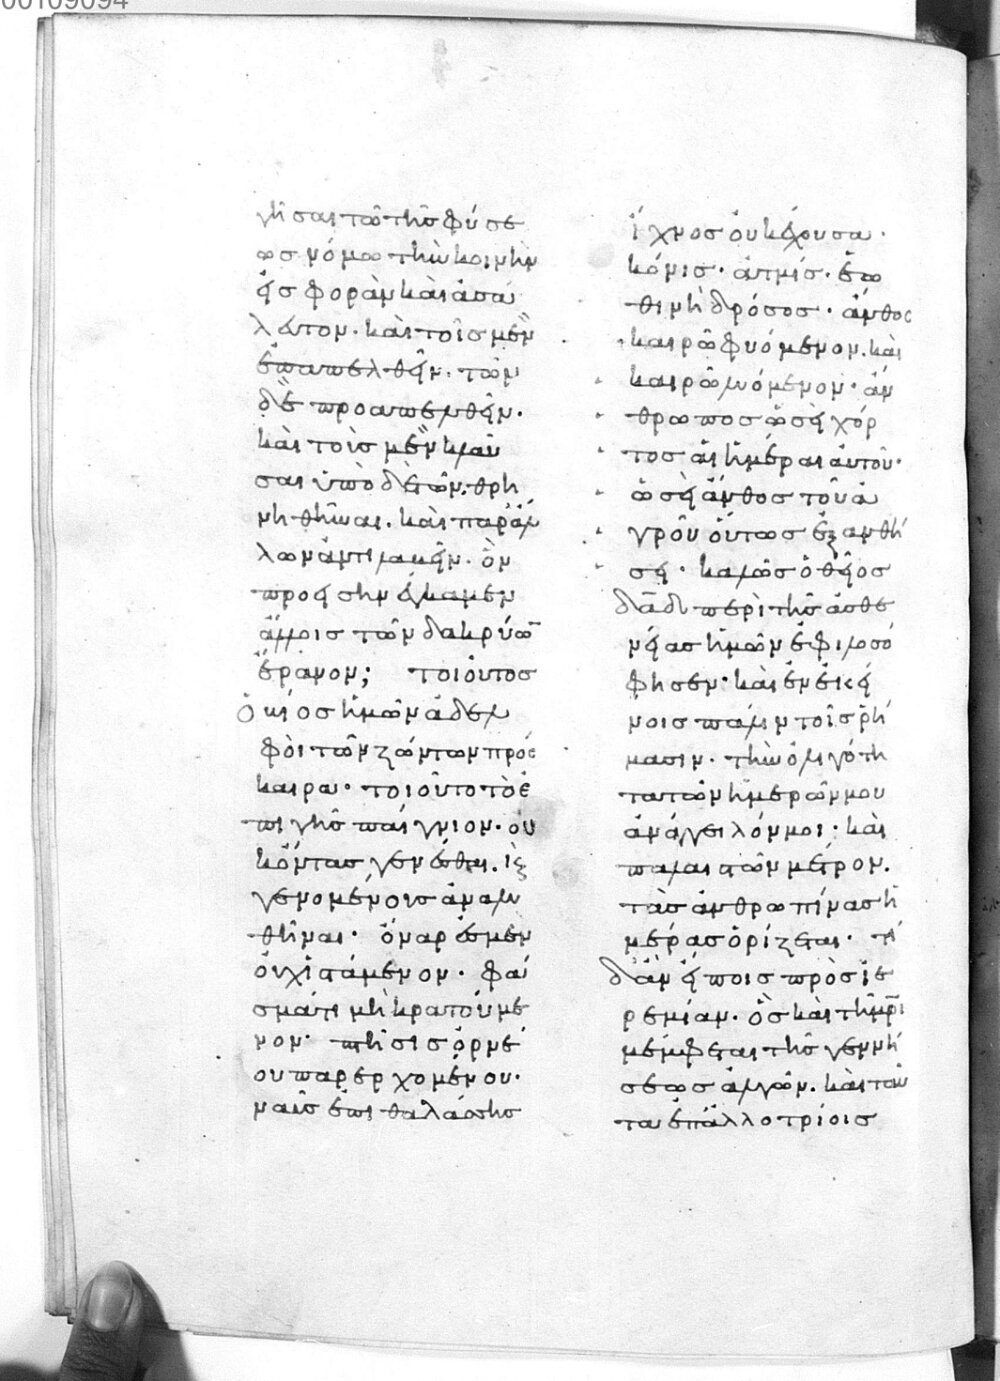 00109094
γῆσαι τῶ τῆσ φύσε
ωσ νόμω τὴν κοινὴν
ἐισφορὰν καὶ ἀσά
λευτον· καὶ τοῖσ μὲν
ἐπαπελθεῖν· τῶν
δὲ προαπελθεῖν·
καὶ τοὺσ μὲν κλαῦ
σαι ὑπὸ δὲ τῶν θρη
νηθῆναι. καὶ παράλ
λων ἀντιλαβεῖν· ὃν
προεισηνέγκαμεν
ἄλλοισ τῶν δακρύω̅
ἔρανον; τοιοῦτοσ
ὁ βίοσ ἡμῶν ἀδελ
φοὶ τῶν ζώντων πρόσ
καιρα· τοιοῦτο τὸ ἐ
πι γῆσ παίγνιον· οὐ
κ ὄντασ γενέσθαι. κὶ
γενομένουσ ἀναλυ
θῆναι· ὄναρ ἐσμὲν
οὐχ ἱστάμενον· φά
σμά τι μὴ κρατούμε
νον· πτῆσισ ὀρνέ
ου παρερχομένου·
ναῦσ ἐπι θαλάσσησ
ἴχνοσ οὐκ ἔχουσα·
κόνισ· ἀτμίσ· ἑω
θινὴ δρόσοσ· ἄνθος
καιρῶ φυόμενον. καὶ
καιρῶ λυόμενον· ἄν
θρωποσ ὡσεὶ χόρ
τοσ αἱ ἡμέραι αὐτοῦ·
ὡσεὶ ἄνθοσ τοῦ ἀ
γροῦ οὕτωσ ἐξανθή
σει· καλῶσ ὁ θεῖοσ
δᾱδ περὶ τῆσ ἀσθε
νείασ ἡμῶν ἐφιλοσό
φησεν· καὶ ἐν ἐκεί
νοισ πάλιν τοῖσ ῥή
μασιν· τὴν ὀλιγότη
τα τῶν ἡμερῶν μου
ἀνάγγειλόν μοι· καὶ
παλαιστῶν μέτρον.
τὰσ ἀνθρωπίνασ ἡ
μέρασ ὁρίζεται· τί
δ'ἂν εἴποισ πρὸσ ἱε
ρεμίαν· ὃσ καὶ τῆ μρ̅ι
μέμφεται τῆσ γεννή
σεωσ ἀλγῶν. καὶ ταῦ
τα ἐπ'ἀλλοτρίοισ